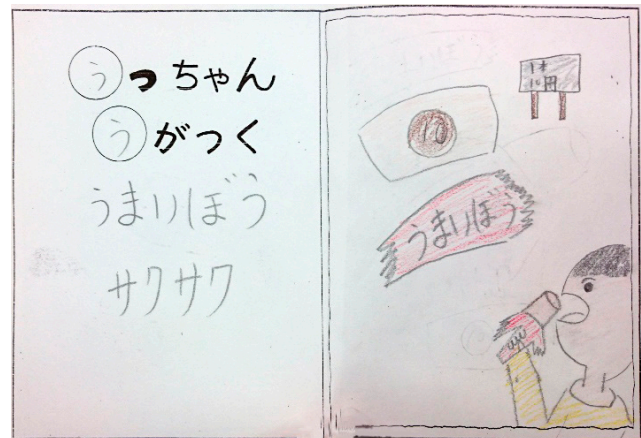 うっちゃん
うがつく
うまいぼう
サクサク
10
1本
10円
うまいぼう